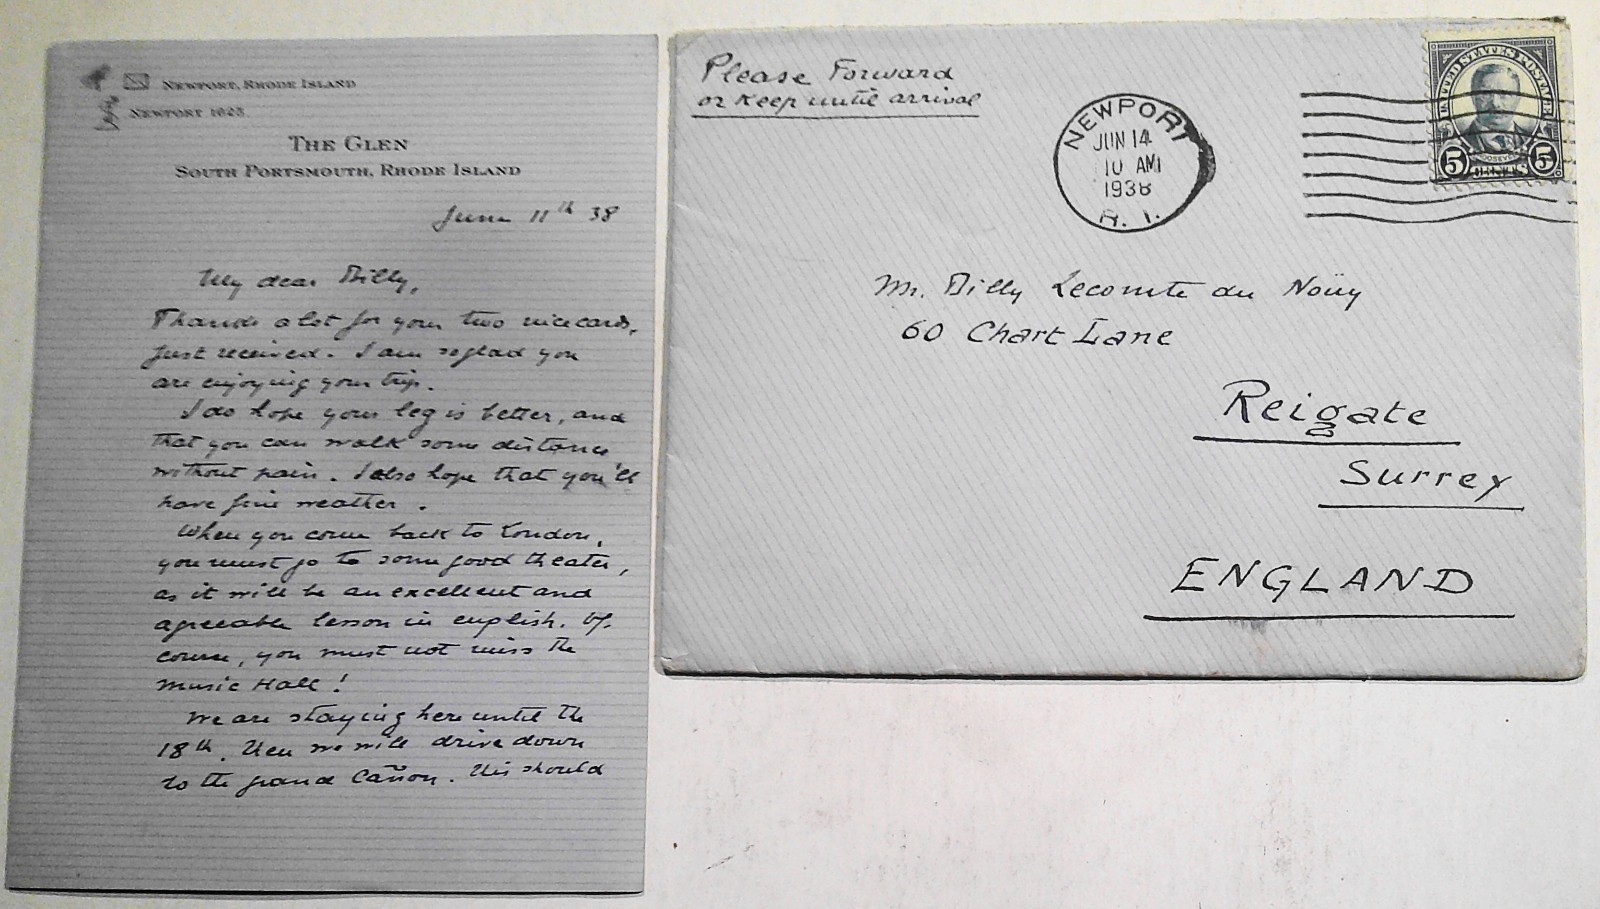 Newport, Rhode Island
Newport 1623
The Glen
South Portsmouth, Rhode Island
June 11th 38
My dear Billy,
Thanks a lot for your two nice cards,
just received. I am so glad you
are enjoying your trip.
I do hope your leg is better, and
that you can walk some distance
without pain. I also hope that you'll
have fine weather.
When you come back to London,
you must go to some good theater,
as it will be an excellent and
agreeable lesson in english. Of
course, you must not miss the
Music Hall!
We are staying here until the
18th. Then we will drive down
to the grand Cañon. This should
Please Forward
or keep until arrival
NEWPORT
JUN 14
10 AM
1938
R. I.
UNITED STATES POSTAGE
ROOSEVELT
5 CENTS 5
Mr. Billy Lecomte du Noüy
60 Chart Lane
Reigate
Surrey
ENGLAND